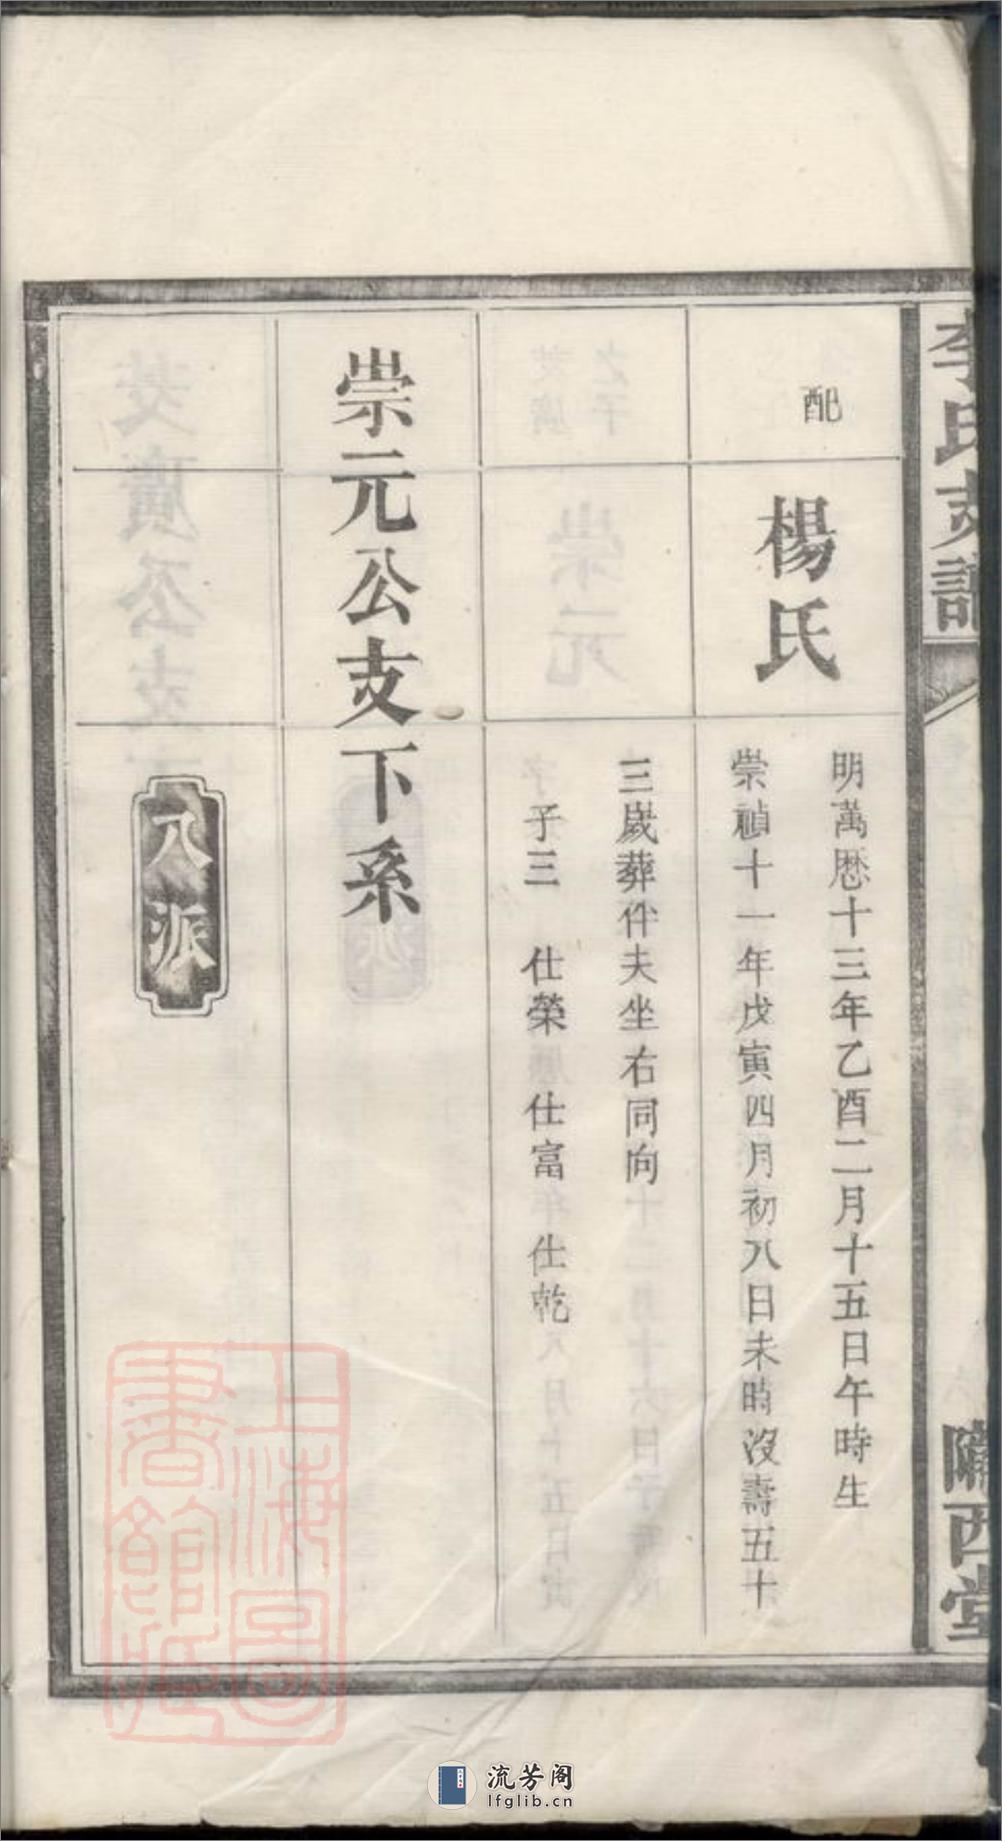 李氏支譜
隴西堂
配
楊氏
明萬厯十三年乙酉二月十五日午時生
崇禎十一年戊寅四月初八日未時沒壽五十
三歲葬伴夫坐右同向
子三 仕榮 仕富 仕乾
崇元公支下系
八派
上海圖
書館藏
流芳阁
lfglib.cn